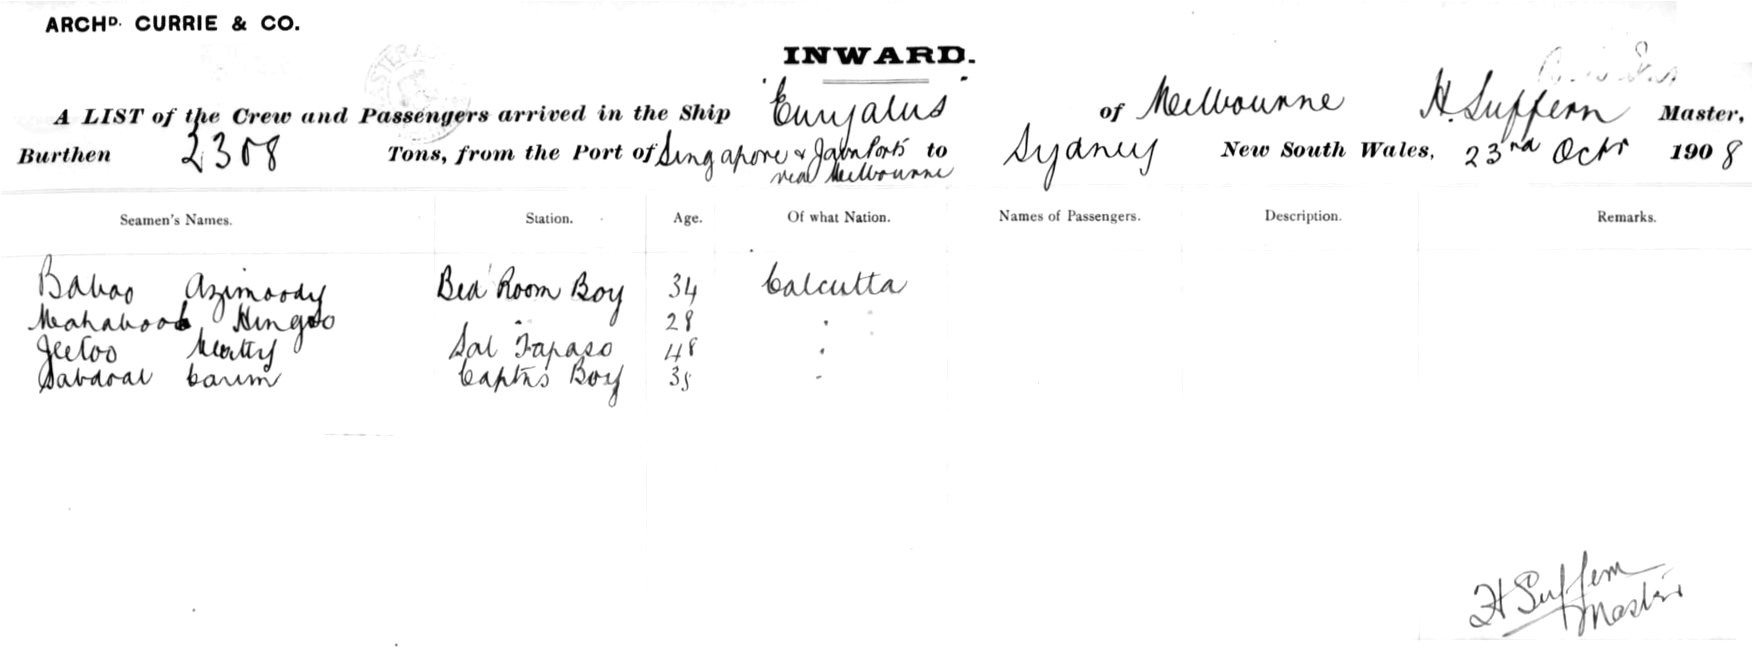 ARCHD. CURRIE & CO.
INWARD.
A LIST of the Crew and Passengers arrived in the Ship "Euryalus" of Melbourne H. Suffern Master,
Burthen 2308 Tons, from the Port of Singapore & Java Ports to Sydney New South Wales, 23rd Octr 1908
Melbourne
Seamen's Names. Station. Age. Of what Nation. Names of Passengers. Description. Remarks.
Baboo Azimoody Bed Room Boy 34 Calcutta
Mahaboob Hingoo " 28 "
Jeetoo 48 "
Carim Captns Boy 35 "
H Suffern
Master